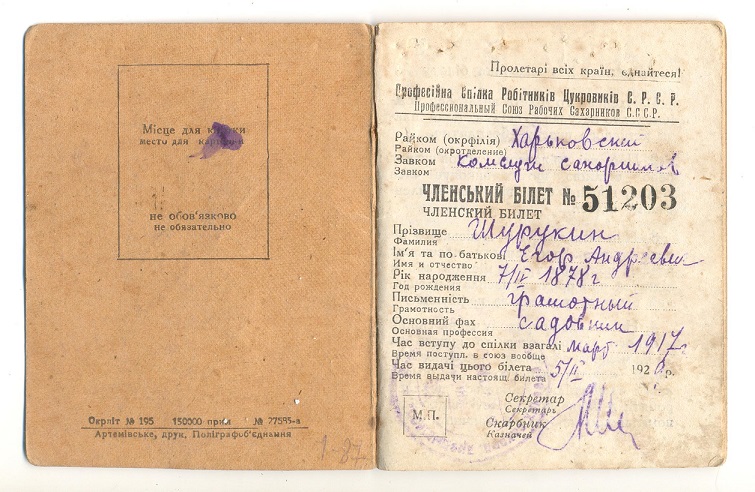 Місце для
место для
не обов'язково
не обязательно
Окрліт № 195 150000 прим. № 27585-а
Артемівське, друк. Поліграфоб'єднання
1-87
Пролетарі всіх країн, єднайтеся!
Професійна Спілка Робітників Цукровиків С. Р. С. Р.
Профессиональный Союз Рабочих Сахарников С.С.С.Р.
Райком (окрфілія) Харьковский
Райком (окротделение)
Завком
Завком
ЧЛЕНСЬКИЙ БІЛЕТ № 51203
ЧЛЕНСКИЙ БИЛЕТ
Прізвище Шурукин
Фамилия
Ім'я та по батькові Егор Андреевич
Имя и отчество
Рік народження 7/IV 1878 г
Год рождения
Письменність грамотный
Грамотность
Основний фах садовник
Основная профессия
Час вступу до спілки взагалі март 1917 г
Время поступл. в союз вообще
Час видачі цього білета 5/II 192 р.
Время выдачи настоящ. билета
М.П.
Секретар
Секретарь
Скарбник
Казначей